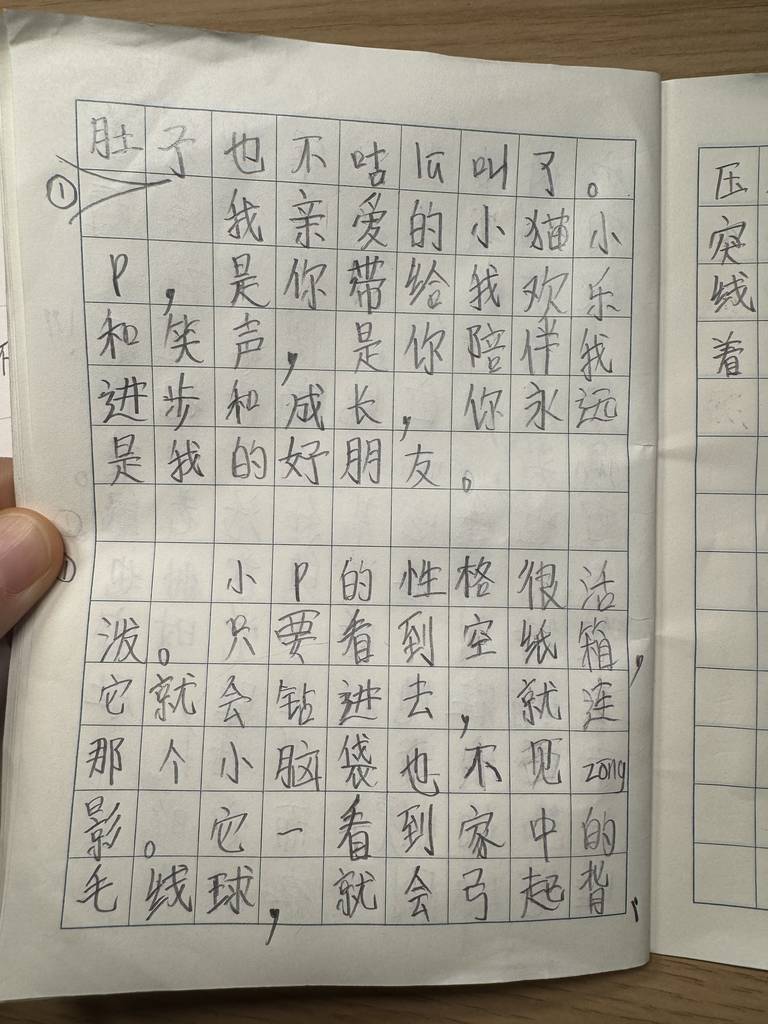 肚子也不咕瓜叫了。
①
我亲爱的小猫小
P，是你带给我欢乐
和笑声，是你陪伴我
进步和成长，你永远
是我的好朋友。
小P的性格很活
泼。只要看到空纸箱，
它就会钻进去，就连
那个小脑袋也不见zong
影。它一看到家中的
毛线球，就会弓起背、
压
突
线
着